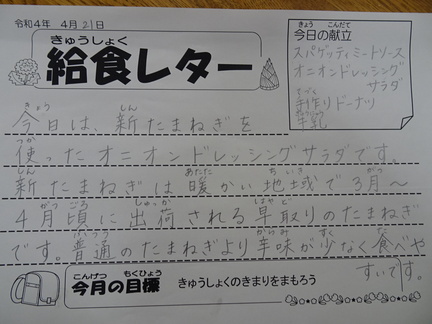 令和4年 4月21日
きゅうしょく
給食レター
きょう こんだて
今日の献立
スパゲッティミートソース
オニオンドレッシング
サラダ
てづく
手作りドーナツ
牛乳
きょう しん
今日は、新たまねぎを
つか
使ったオニオンドレッシングサラダです。
しん あたた ちいき がつ
新たまねぎは暖かい地域で3月〜
がつごろ しゅっか はやど
4月頃に出荷される早取りのたまねぎ
ふつう からみ すく た
です。普通のたまねぎより辛味が少なく食べや
すいです。
こんげつ もくひょう
今月の目標
きゅうしょくのきまりをまもろう